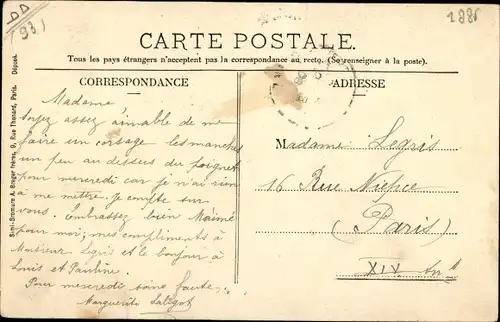 (93)
1886
CARTE POSTALE.
Tous les pays étrangers n'acceptent pas la correspondance au recto. (Se renseigner à la poste).
CORRESPONDANCE
Madame,
soyez assez aimable de me
faire un corsage les manches
un peu au dessus du poignet
pour mercredi car je n'ai rien
à me mettre. Je compte sur
vous. Embrassez bien
pour moi; mes compliments à
Monsieur Legris et le bonjour à
Louis et Pauline.
Pour mercredi sans faute.
Marguerite
ADRESSE
Madame Legris
16 Rue Niepce
(Paris)
XIV Arrt
Simi-Bromure A. Breger frères, 9, Rue Thenard, Paris. Déposé.